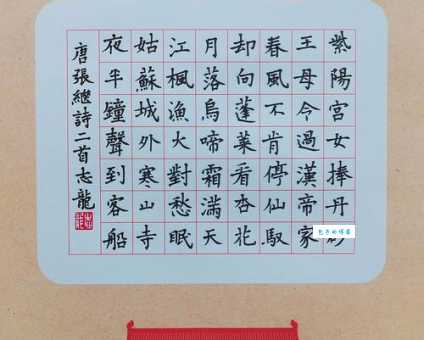 紫陽宮女捧丹砂
王母令過漢帝家
春風不肯停仙馭
却向蓬萊看杏花
月落烏啼霜滿天
江楓漁火對愁眠
姑蘇城外寒山寺
夜半鐘聲到客船
唐張繼詩二首志龍